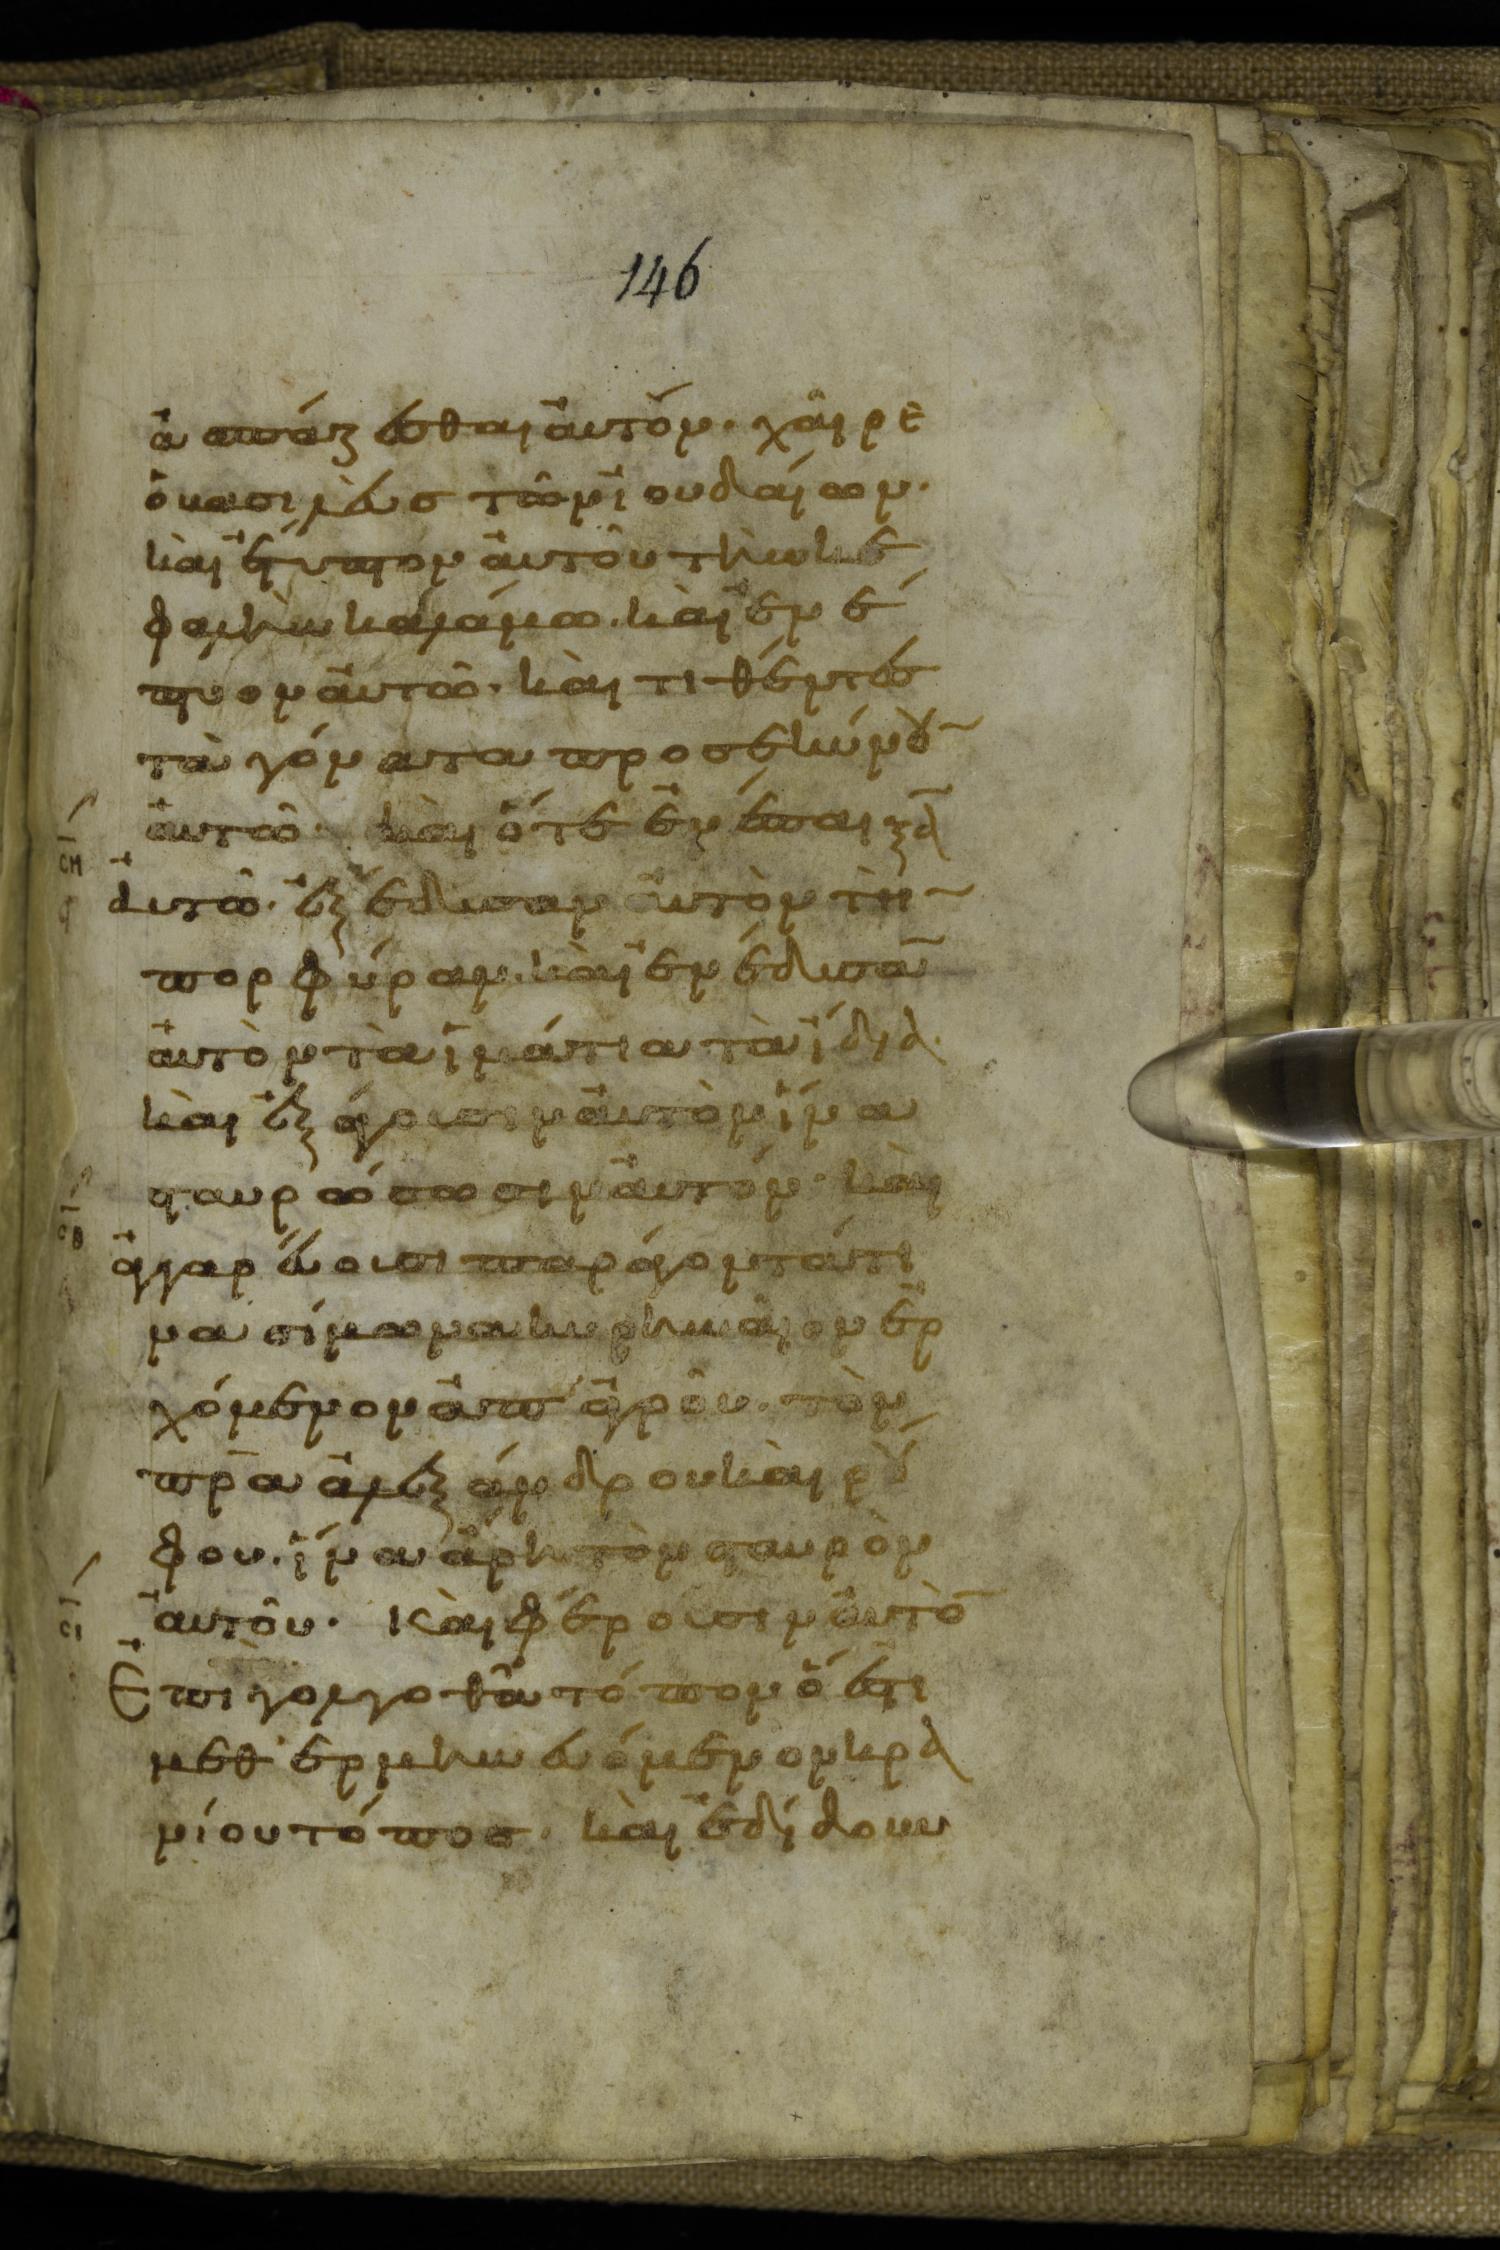 146
ἀσπάζεσθαι αὐτόν· χαῖρε
ὁ βασιλεὺς τῶν ἰουδαίων·
καὶ ἔτυπτον αὐτοῦ τὴν κε
φαλὴν καλάμω· καὶ ἐνέ
πτυον αὐτῶ· καὶ τιθέντες
τὰ γόνατα προσεκύνοῦ
αὐτῶ· καὶ ὅτε ἐνέπαιξᾶ
αὐτῶ· ἐξέδυσαν αὐτὸν τὴ͂
πορφύραν· καὶ ἐνέδυσᾶ
αὐτὸν τὰ ἱμάτια τὰ ἴδια·
καὶ ἐξάγουσιν αὐτὸν ἵνα
σταυρώσωσιν αὐτόν· καὶ
ἀγγαρεύουσι παράγοντά τι
να σίμωνα κυρηναῖον ἐρ
χόμενον ἀπ' ἀγροῦ· τὸν
πρ̅α ἀλεξάνδρου καὶ ῥού
φου· ἵνα ἄρη τὸν σταυρὸν
αὐτοῦ· Καὶ φέρουσιν αὐτὸ͂
Ἐπὶ γολγοθᾶ τόπον ὅ ἐστι
μεθερμηνευόμενον κρα
νίου τόπος· καὶ ἐδίδουν